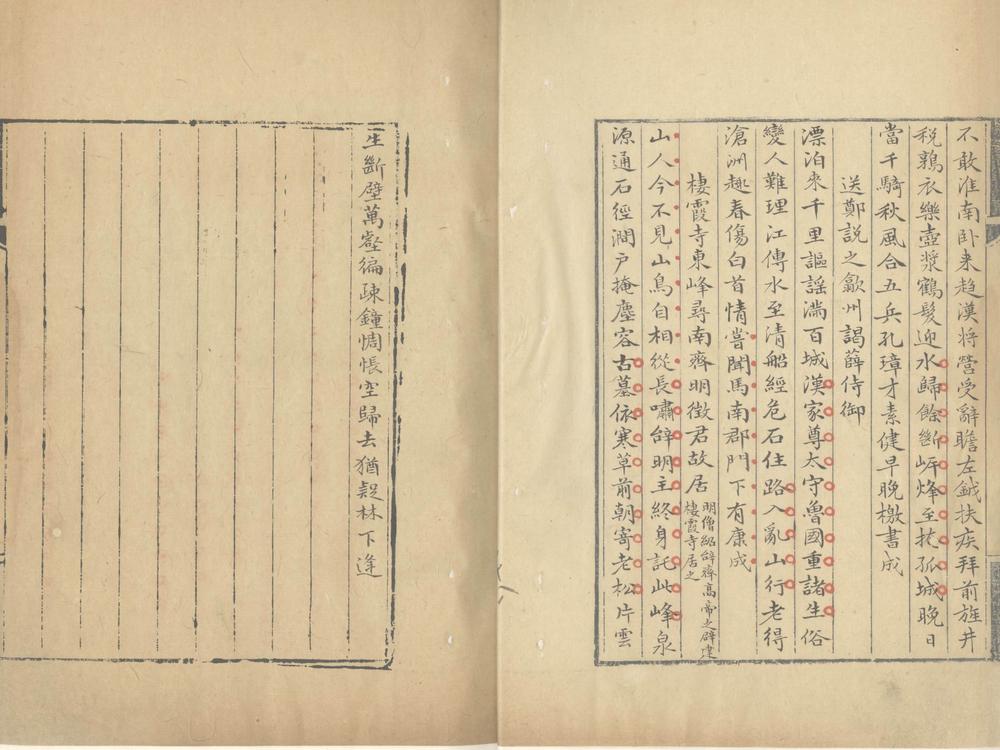 不敢淮南卧来趋漢將營受辭瞻左鉞扶疾拜前旌井
税鶉衣樂壺漿鶴髮迎水歸餘斷岸烽至掩孤城晚日
當千騎秋風合五兵孔璋才素健早晚檄書成
送鄭説之歙州謁薛侍御
漂泊來千里謳謡滿百城漢家尊太守魯國重諸生俗
變人難理江傳水至清船經危石住路入亂山行老得
滄洲趣春傷白首情嘗聞馬南郡門下有康成
棲霞寺東峰尋南齊明徵君故居
明僧紹辭齊高帝之辟建
棲霞寺居之
山人今不見山鳥自相從長嘯辭明主終身託此峰泉
源通石徑澗户掩塵容古墓依寒草前朝寄老松片雲
生斷壁萬壑徧疎鐘惆悵空歸去猶疑林下逢